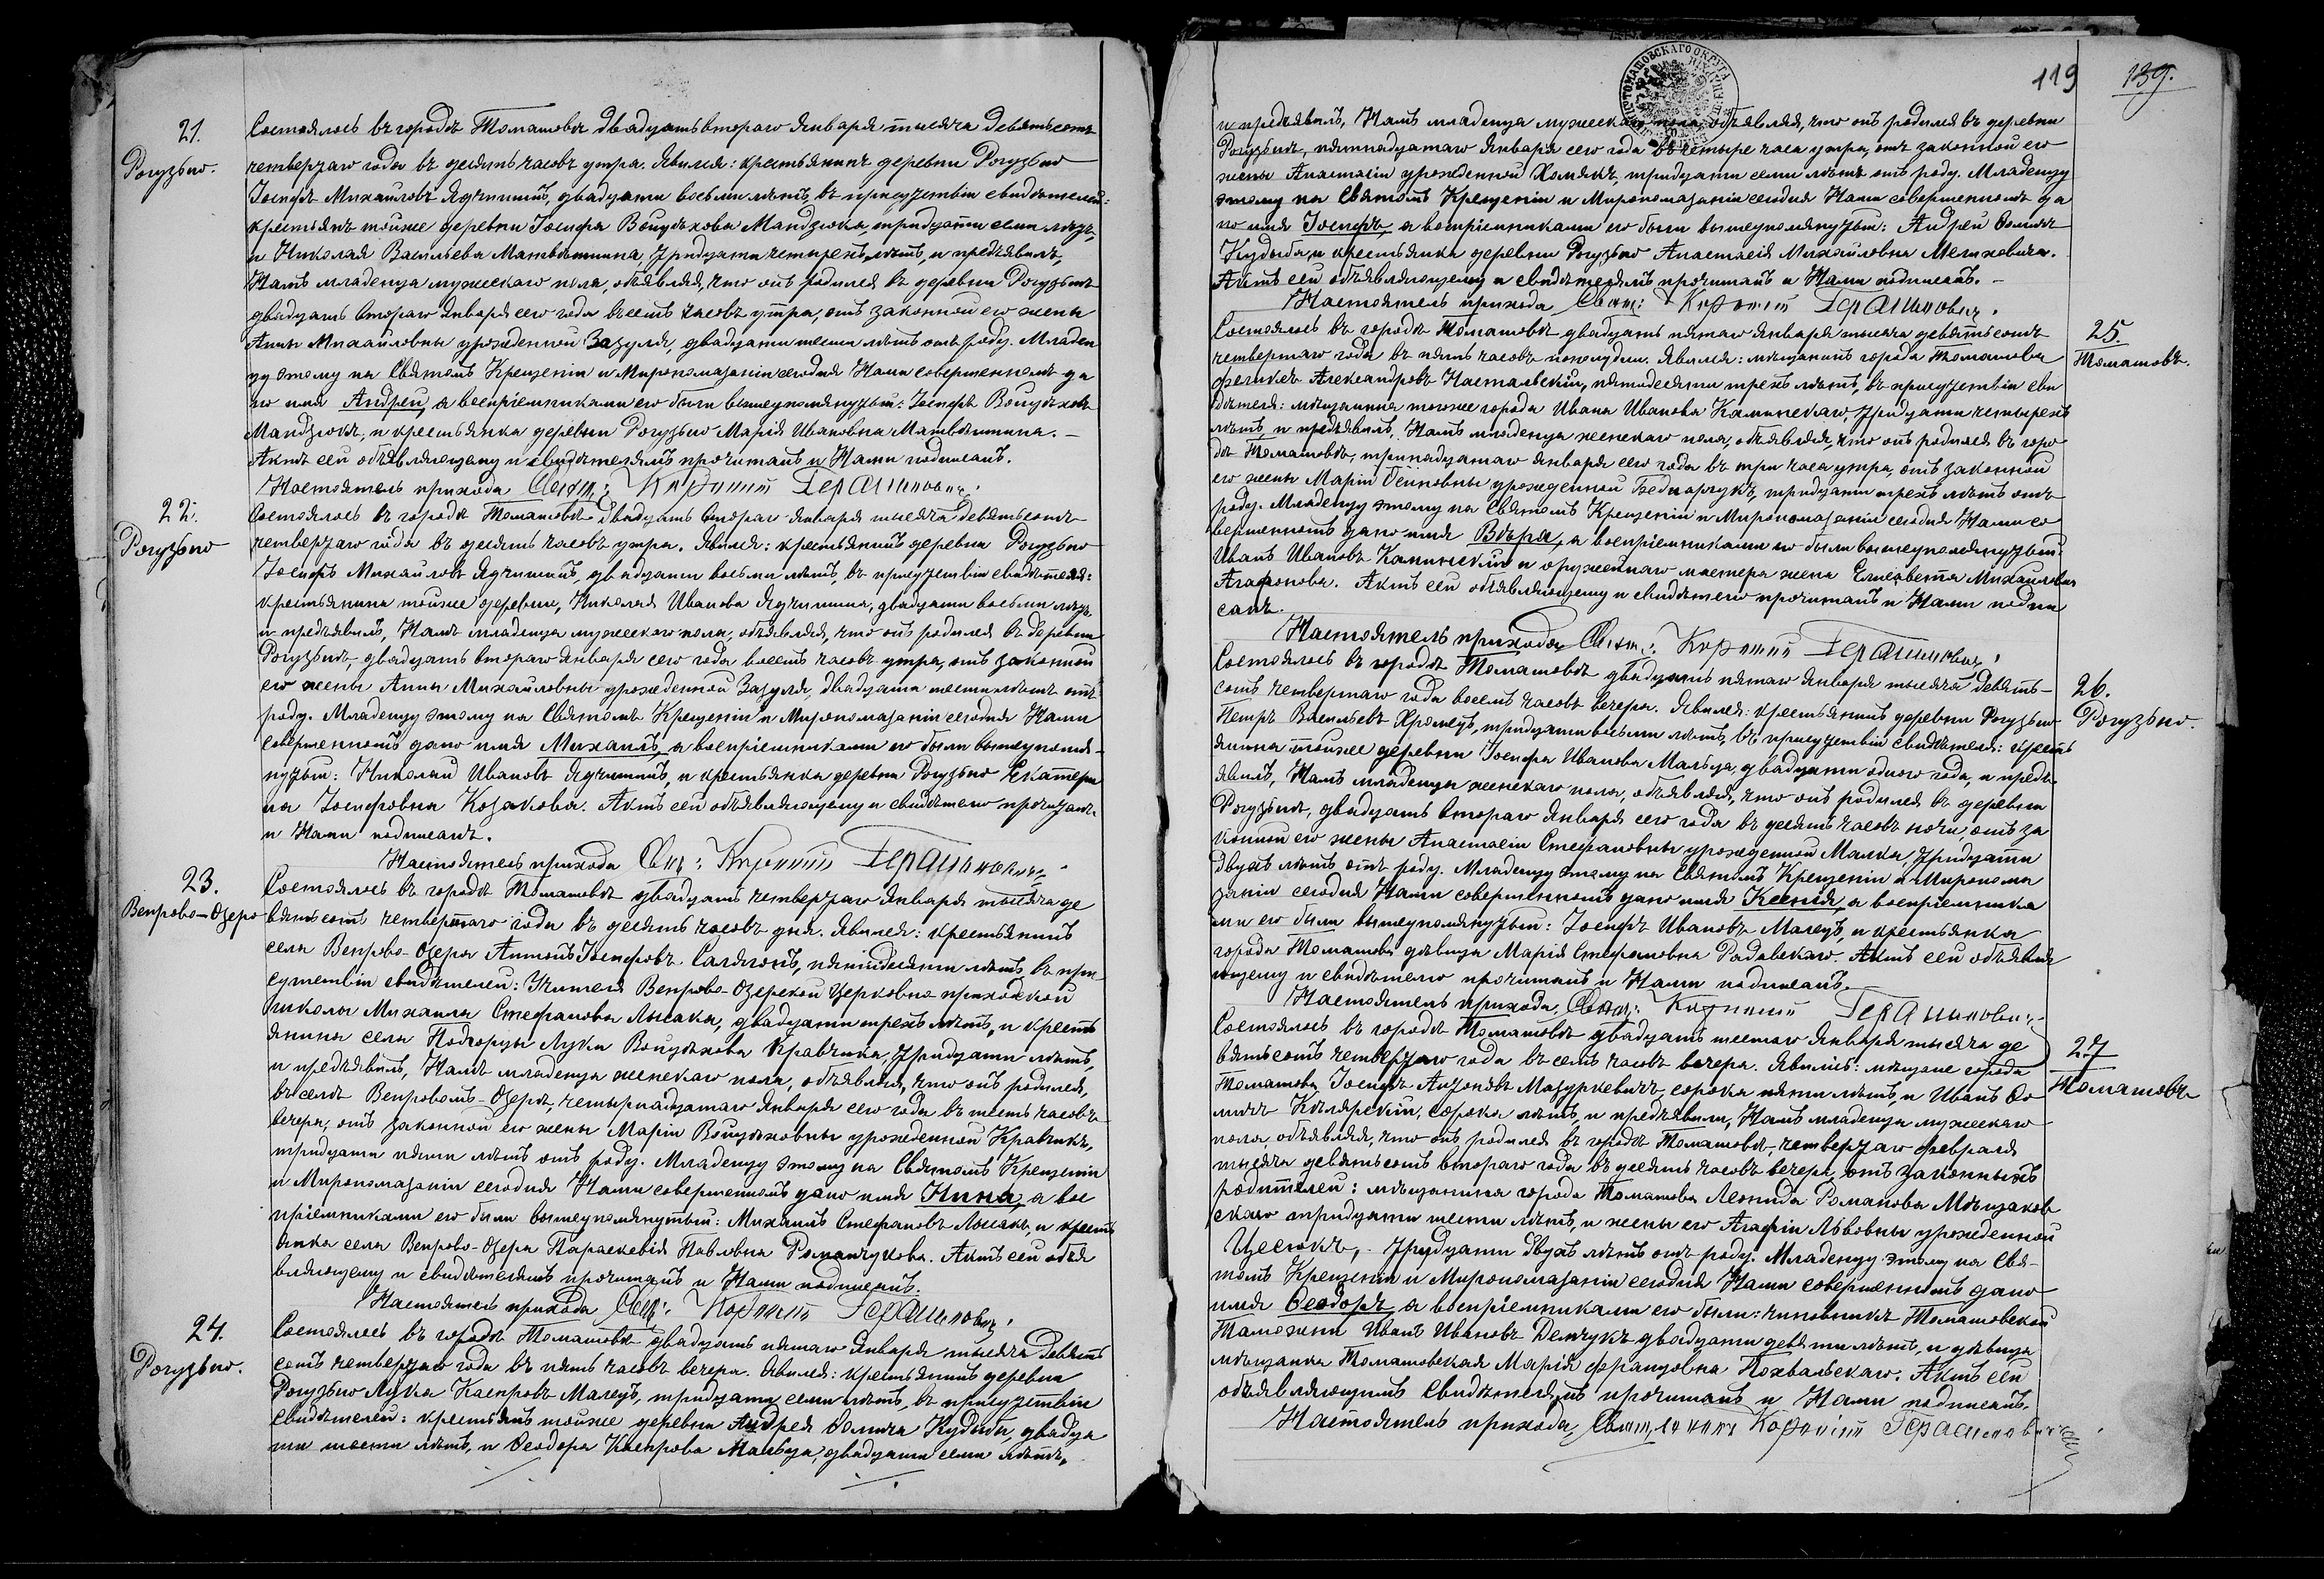 21.
Рогузьно.
Состоялось въ городѣ Томашовѣ двадцать втораго Января тысяча девятьсотъ
четвертаго года въ десять часовъ утра. Явился: крестьянинъ деревни Рогузьно
Іосифъ Михаиловъ Ядчишинъ, двадцати восьми лѣтъ, въ присутствіи свидѣтелей:
крестьянъ тойже деревни Іосифа Войцѣхова Мандзюка, тридцати семи лѣтъ,
и Николая Васильева Матвѣишина, тридцати четырехъ лѣтъ, и предъявилъ,
Намъ младенца мужескаго пола, объявляя, что онъ родился въ деревни Рогузьнѣ
двадцать втораго Января сего года въ семь часовъ утра, отъ законной его жены
Анны Михаиловны урожденной Зазуля, двадцати шести лѣтъ отъ роду. Младен
цу этому на Святомъ Крещеніи и Миропомазаніи сегодня Нами совершенномъ да
но имя Андрей, а воспріемниками его были вышеупомянутый: Іосифъ Войцѣховъ
Мандзюкъ, и крестьянка деревни Рогузьно Марія Ивановна Матвѣишина. —
Актъ сей объявляющему и свидѣтелямъ прочитанъ и Нами подписанъ.
Настоятель прихода Свящ: Корнилій Герасимовичъ.
22.
Рогузьно
Состоялось въ городѣ Томашовѣ двадцать втораго Января тысяча девятьсотъ
четвертаго года въ десять часовъ утра. Явился: крестьянинъ деревни Рогузьно
Іосифъ Михаиловъ Ядчишинъ, двадцати восьми лѣтъ, въ присутствіи свидѣтеля:
крестьянина тойже деревни, Николая Иванова Ядчишина, двадцати восьми лѣтъ,
и предъявилъ, Намъ младенца мужескаго пола, объявляя, что онъ родился въ деревни
Рогузьнѣ, двадцать втораго Января сего года восемь часовъ утра, отъ законной
его жены Анны Михаиловны урожденной Зазуля, двадцати шести лѣтъ отъ
роду. Младенцу этому на Святомъ Крещеніи и Миропомазаніи сегодня Нами
совершенномъ дано имя Михаилъ, а воспріемниками его были вышеупомя-
нутый: Николай Ивановъ Ядчишинъ, и крестьянка деревни Рогузьно Екатери
на Іосифовна Козакова. Актъ сей объявляющему и свидѣтелю прочитанъ
и Нами подписанъ.
Настоятель прихода Свящ: Корнилій Герасимовичъ.
23.
Венрово-Озеро
Состоялось въ городѣ Томашовѣ двадцать четвертаго Января тысяча де
вятьсотъ четвертаго года въ десять часовъ дня. Явился: крестьянинъ
села Венрово-Озера Антонъ Іосифовъ Салягонъ, пятидесяти лѣтъ, въ при-
сутствіи свидѣтелей: Учителя Венрово-Озерской Церковно-приходской
школы Михаила Стефанова Лысака, двадцати трехъ лѣтъ, и кресть
янина села Подгорцы Луки Войцѣхова Кравчика, тридцати лѣтъ,
и предъявилъ, Намъ младенца женскаго пола, объявляя, что онъ родился,
въ селѣ Венровомъ-Озерѣ, четырнадцатаго Января сего года въ шесть часовъ
вечера, отъ законной его жены Маріи Войцѣховны урожденной Кравчикъ,
тридцати пяти лѣтъ отъ роду. Младенцу этому на Святомъ Крещеніи
и Миропомазаніи сегодня Нами совершенномъ дано имя Нина, а вос
пріемниками его были вышеупомянутый: Михаилъ Стефановъ Лысакъ, и кресть
янка села Венрово-Озера Параскевія Павловна Романчукова. Актъ сей объя
вляющему и свидѣтелямъ прочитанъ и Нами подписанъ.
Настоятель прихода Свящ: Корнилій Герасимовичъ.
24.
Рогузьно.
Состоялось въ городѣ Томашовѣ двадцать пятаго Января тысяча девять
сотъ четвертаго года въ пять часовъ вечера. Явился: крестьянинъ деревни
Рогузьно Лука Каспровъ Малецъ, тридцати семи лѣтъ, въ присутствіи
свидѣтелей: крестьянъ тойже деревни Андрея Ѳомича Кудыбы, двадца
ти шести лѣтъ, и Ѳеодора Каспрова Мальца, двадцати семи лѣтъ,
119 139.
и предъявилъ, Намъ младенца мужескаго пола, объявляя, что онъ родился въ деревни
Рогузьнѣ, пятнадцатаго Января сего года въ четыре часа утра, отъ законной его
жены Анастасіи урожденной Хомякъ, тридцати семи лѣтъ отъ роду. Младенцу
этому на Святомъ Крещеніи и Миропомазаніи сегодня Нами совершенномъ да
но имя Іосифъ, а воспріемниками его были вышеупомянутый: Андрей Ѳомичъ
Кудыба, и крестьянка деревни Рогузьно Анастасія Михаиловна Мелиховича.
Актъ сей объявляющему и свидѣтелямъ прочитанъ и Нами подписанъ. —
Настоятель прихода Свящ: Корнилій Герасимовичъ.
25.
Томашовъ.
Состоялось въ городѣ Томашовѣ двадцать пятаго Января тысяча девятьсотъ
четвертаго года въ пять часовъ пополудни. Явился: мѣщанинъ города Томашова
Феликсъ Александровъ Настальскій, пятидесяти трехъ лѣтъ, въ присутствіи сви
дѣтеля: мѣщанина тогоже города Ивана Иванова Калинскаго, тридцати четырехъ
лѣтъ, и предъявилъ, Намъ младенца женскаго пола, объявляя, что онъ родился въ горо
дѣ Томашовѣ, тринадцатаго Января сего года въ три часа утра, отъ законной
его жены Маріи урожденной Беднарчукъ, тридцати трехъ лѣтъ отъ
роду. Младенцу этому на Святомъ Крещеніи и Миропомазаніи сегодня Нами со
вершенномъ дано имя Вѣра, а воспріемниками его были вышеупомянутый
Иванъ Ивановъ Калинскій и оружейнаго мастера жена Елисавета Михаиловна
Агафонова. Актъ сей объявляющему и свидѣтелю прочитанъ и Нами подпи
санъ.
Настоятель прихода Свящ: Корнилій Герасимовичъ.
26.
Рогузьно.
Состоялось въ городѣ Томашовѣ двадцать пятаго Января тысяча девять-
сотъ четвертаго года восемь часовъ вечера. Явился: крестьянинъ деревни Рогузьно
Петръ Васильевъ Хромецъ, тридцати восьми лѣтъ, въ присутствіи свидѣтеля: кресть
янина тойже деревни Іосифа Иванова Мальца, двадцати одного года, и предъ
явилъ, Намъ младенца женскаго пола, объявляя, что онъ родился въ деревни
Рогузьнѣ, двадцать втораго Января сего года въ десять часовъ ночи, отъ за
конной его жены Анастасіи Стефановны урожденной Малка, тридцати
двухъ лѣтъ отъ роду. Младенцу этому на Святомъ Крещеніи и Миропома
заніи сегодня Нами совершенномъ дано имя Ксенія, а воспріемника
ми его были вышеупомянутый: Іосифъ Ивановъ Малецъ, и крестьянка
города Томашова дѣвица Марія Стефановна Радавскаго. Актъ сей объявля
ющему и свидѣтелю прочитанъ и Нами подписанъ.
Настоятель прихода, Свящ: Корнилій Герасимовичъ.
27
Томашовъ
Состоялось въ городѣ Томашовѣ двадцать шестаго Января тысяча де
вятьсотъ четвертаго года въ семь часовъ вечера. Явились: мѣщане города
Томашова Іосифъ Антоновъ Мазуркевичъ, сорока пяти лѣтъ, и Иванъ Ѳо
мичъ Кѣлярскій, сорока лѣтъ, и предъявили, Намъ младенца мужескаго
пола, объявляя, что онъ родился въ городѣ Томашовѣ, четвертаго февраля
тысяча девятьсотъ втораго года въ десять часовъ вечера, отъ законныхъ
родителей: мѣщанина города Томашова Леонида Романова Мѣщаков
скаго тридцати шести лѣтъ, и жены его Агафіи Львовны урожденной
Цесюкъ, тридцати двухъ лѣтъ отъ роду. Младенцу этому на Свя-
томъ Крещеніи и Миропомазаніи сегодня Нами совершенномъ дано
имя Ѳеодоръ, а воспріемниками его были: чиновникъ Томашовской
Таможни Иванъ Ивановъ Демчукъ двадцати девяти лѣтъ, и дѣвица
мѣщанка Томашовская Марія Францовна Похвальскаго. Актъ сей
объявляющимъ свидѣтелямъ прочитанъ и Нами подписанъ.
Настоятель прихода, Священникъ Корнилій Герасимовичъ